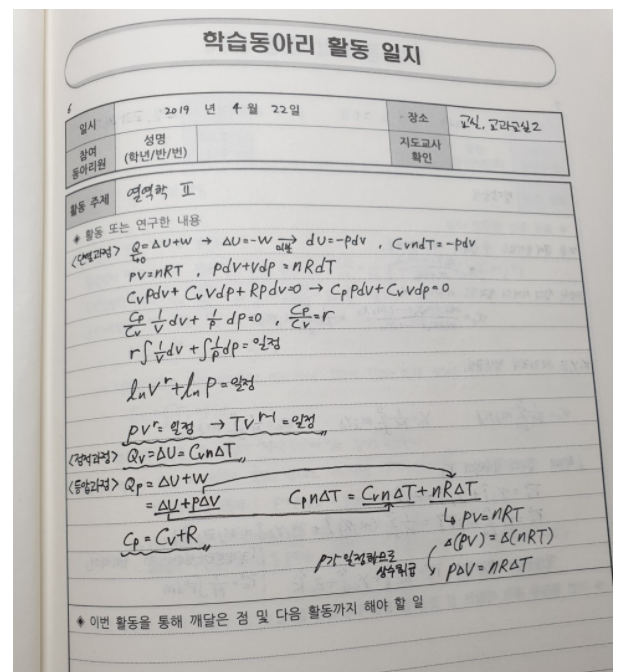 학습동아리 활동 일지
6
일시 2019 년 4월 22일 장소 교실, 교과교실2
참여 동아리원 성명 (학년/반/번) 지도교사 확인
활동 주제 열역학 Ⅱ
◆ 활동 또는 연구한 내용
<단열과정> Q=ΔU+W → ΔU=-W →미분 dU=-pdv , CvndT=-pdv
↳0
PV=nRT , pdv+vdp=nRdT
CvPdv+CvVdp+Rpdv=0 → CpPdv+CvVdp=0
Cp/Cv 1/V dv + 1/p dp=0 , Cp/Cv=r
r∫1/V dv + ∫1/p dp=일정
lnVʳ+lnP=일정
PVʳ=일정 → TVʳ⁻¹=일정
<정적과정> Qv=ΔU=CvnΔT
<등압과정> Qp=ΔU+W
=ΔU+PΔV CpnΔT=CvnΔT+nRΔT
↳ PV=nRT
Cp=Cv+R Δ(PV)=Δ(nRT)
P가 일정하므로 상수취급 PΔV=nRΔT
◆ 이번 활동을 통해 깨달은 점 및 다음 활동까지 해야 할 일